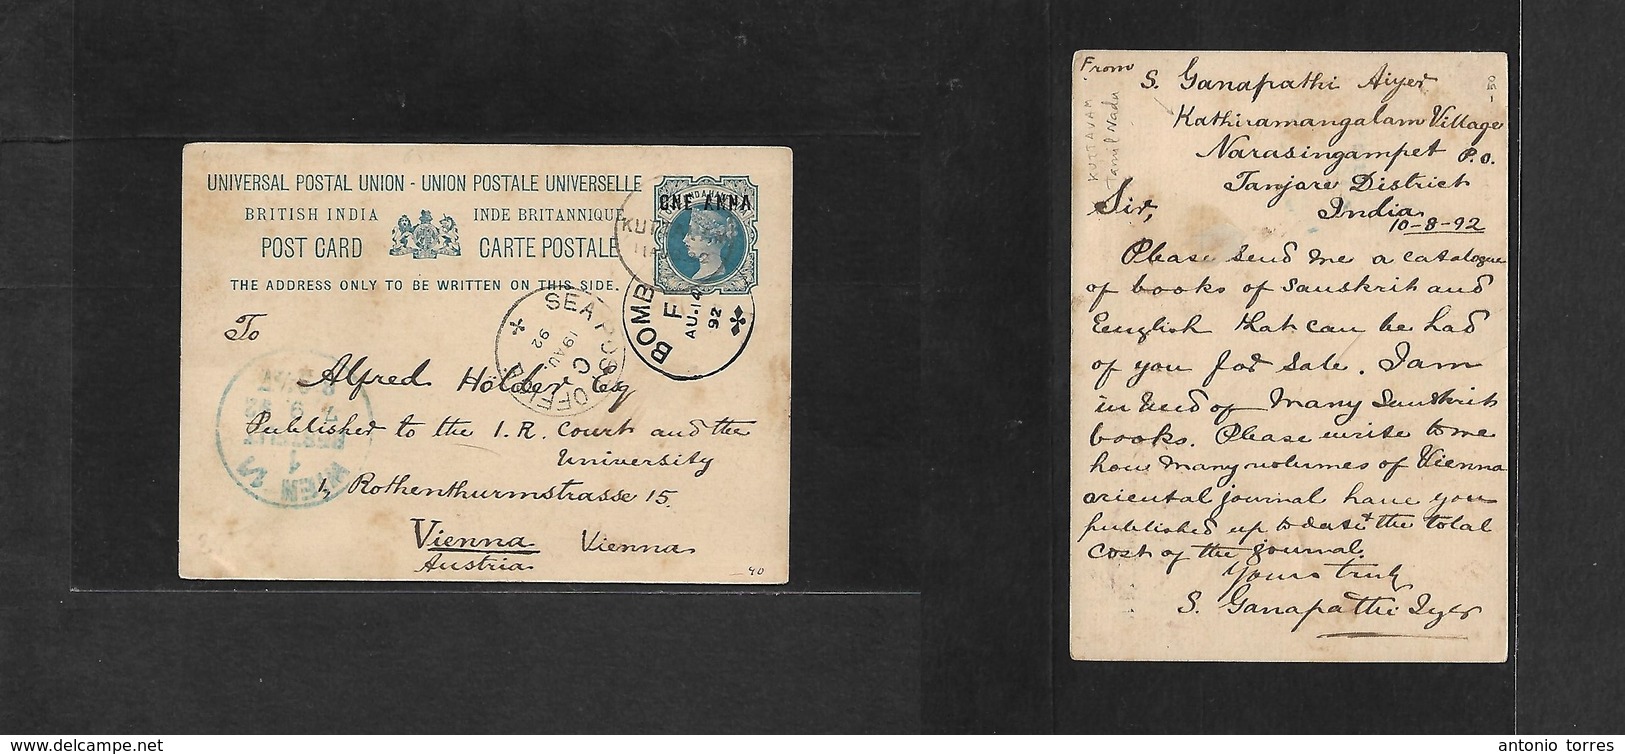 UNIVERSAL POSTAL UNION - UNION POSTALE UNIVERSELLE
BRITISH INDIA INDE BRITANNIQUE
POST CARD CARTE POSTALE
THE ADDRESS ONLY TO BE WRITTEN ON THIS SIDE.
ONE ANNA
KUTT
BOMB
F
AU.14
92
SEA POST OFFICE
C
19 AU.
92
To
Alfred Hölder Esq
Published to the I. R. Court and the
University
1, Rothenthurmstrasse 15.
Vienna Vienna
Austria
WIEN
BESTELLT
1
-40
From
S. Ganapathi Aiyer
Kathiramangalam Village
Narasingampet P.O.
Tanjore District
India
10-8-92
KUTTALAM
Tamil Nadu
-50
Sir,
Please send me a catalogue
of books of Sanskrit and
Eenglish that can be had
of you for sale. I am
in need of many Sanskrit
books. Please write to me
how many volumes of Vienna
oriental journal have you
published up to date & the total
cost of the journal.
Yours truly
S. Ganapathi Iyer
antonio torres